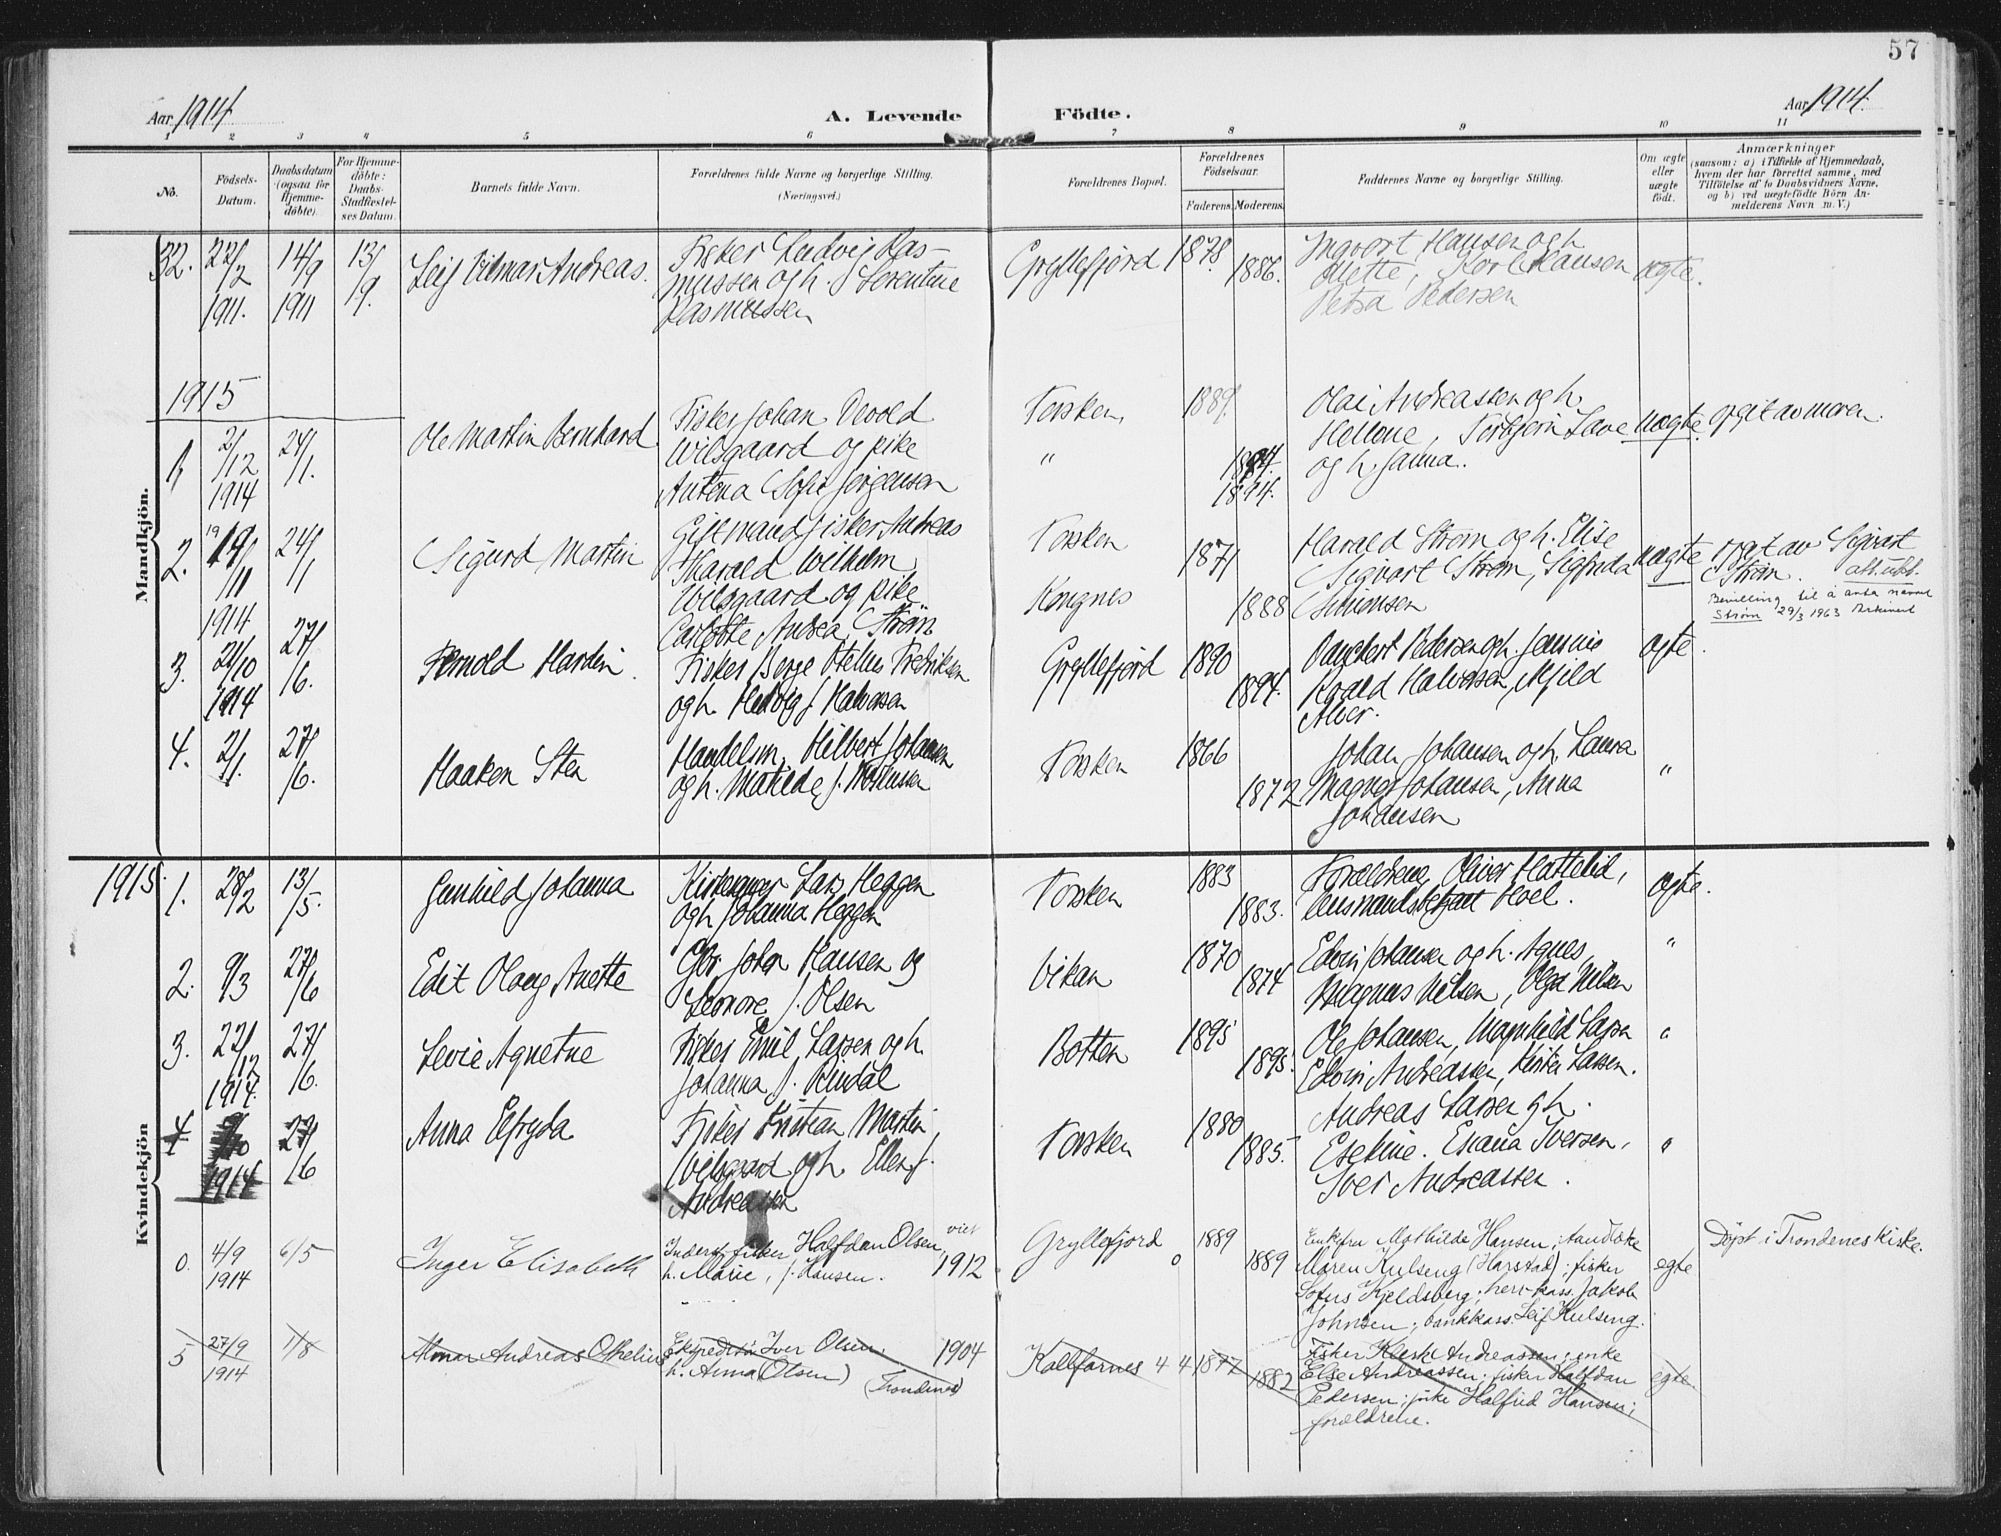 57
Aar 1914.
A. Levende Födte.
Aar 1914.
1 2 3 4 5 6 7 8 9 10 11
No.
Födsels-
Datum.
Daabsdatum
(ogsaa for
Hjemme-
döbte).
For Hjemme-
döbte:
Daabs-
Stadfæstel-
ses Datum.
Barnets fulde Navn.
Forældrenes fulde Navne og borgerlige Stilling.
(Næringsvei.)
Forældrenes Bopæl.
Forældrenes
Födselsaar.
Faderens. Moderens.
Faddernes Navne og borgerlige Stilling.
Om ægte
eller
uægte
födt.
Anmærkninger
(saasom: a) i Tilfælde af Hjemmedaab,
hvem der har forrettet samme, med
Tilföielse af to Daabsvidners Navne,
og b) ved uægtefödte Börn An-
melderens Navn m. V.)
Mandkjön.
32. 22/2 1911. 14/9 1911 13/9.
Leif Vilmar Andreas.
Fisker Ludvig Ras-
mussen og h. Serentine
Rasmussen
Gryllefjord 1878. 1886.
Ingvort Hansen og h.
Mette, Karl Hansen
Petra Pedersen
ægte.
1915
1. 2/12 1914 24/1.
Ole Martin Bernhard
Fisker Johan Devold
Wilsgaard og pike
Antona Sofie Jørgensen
Torsken, 1889.
" 1894.
Olai Andreassen og h.
Hellene, Torbjørn Lave
og h. Janna.
uægte. opgit av moren.
2. 19/11 1914 24/1
Sigurd Martin
Gift mand fisker Andreas
Harald Wilhelm
Wilsgaard og pike
Carlotte Andrea Strøm
Torsken 1871
Kongnes 1888
Harald Strøm og h. Elise
Sigvart Strøm, Sigfrida
Simonsen
uægte opgit av Sigvart
Strøm.
Bevilling til å anta navnet
Strøm 29/3 1963 Arkivert
3. 21/10 1914 27/6.
Fernold Hardin.
Fisker Berge Stelius Fredriksen
og h. Hedvig f. Halvorsen
Gryllefjord 1890 1894.
Pedersen og h. Jensine
Roald Halvorsen,
Alver.
ægte.
4. 2/1. 27/6.
Haaken Sten
Handelsm. Hilbert Johansen
og h. Matilde f.
Torsken 1866 1872
Johan Johansen og h. Laura
Magna Johansen, Anna
Johansen
"
Kvindekjön
1915. 1. 28/2 13/5.
Gunhild Johanna
Kirkesanger Lars Heggen
og h Johanna Heggen
Torsken 1883 1883.
Forældrene, Oliver Hattelid,
Lensmandsbetjent Hoel.
ægte.
2. 9/3 27/6
Edit Olaug Anette
Gbr. Johan Hansen og
Leonore f. Olsen
Vikan 1870 1874
Edvin Johansen og h. Agnes,
Magnus Nilsen, Olga Nilsen
"
3. 22/12 1914. 27/6.
Levie Agnetne
Fisker Emil Larsen og h.
Johanna f. Rindal
Botten 1895 1895.
Ole Johansen, Magnhild Larsen
Edvin Andreassen, Kirsten Larsen.
"
4 9/10 1914 27/6
Anna Elfryda
Fisker Kristian Martin
Wilsgaard og h. Ellen f.
Andreassen
Torsken 1880 1885.
Andreas Larsen og h.
Esekine. Esana Iversen,
Iver Andreassen.
"
0. 4/9 1914 6/5
Inger Elisabeth
Inderst, fisker Halfdan Olsen, viet
h. Marie, f. Hansen. 1912
Gryllefjord 0 1889 1889
Enkefru Mathilde Hansen; tandlæke
Maren Kulseng (Harstad); fisker
Sofus Kjeldsberg; herr. kass. Jakob
Johnsen; bankkass. Leif Kulseng.
egte
Döpt i Trondenes kirke.
5 27/9 1914 1/8
Almar Andreas Othelius
Ekspeditör Iver Olsen, 1904
h. Anna (Olsen) (Trondenes)
Kalfarnes 4 4 1877 1882
Fisker Andreassen; enke
Else Andreassen; fisker Halfdan
Pedersen; pike Halfrid Hansen;
forældrene.
egte